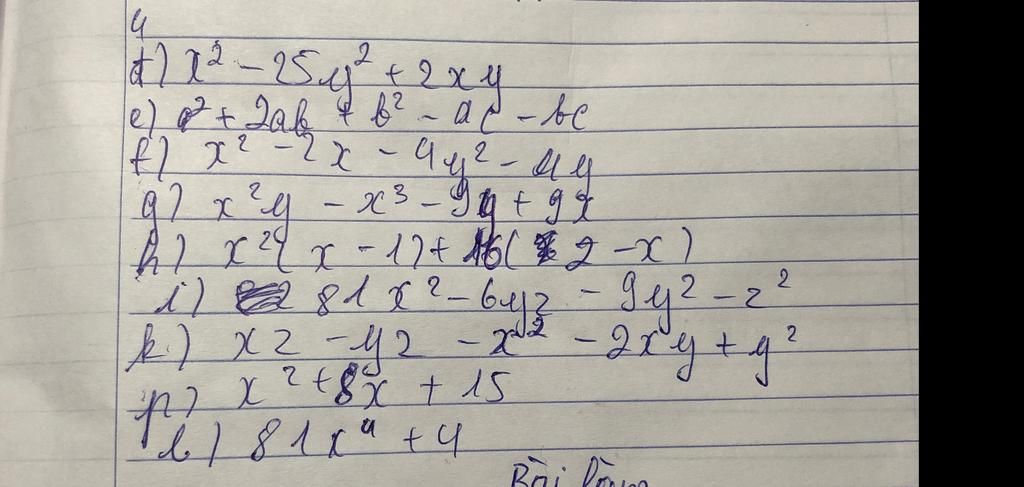 4
d) x² - 25y² + 2xy
e) a² + 2ab + b² - ac - bc
f) x² - 2x - 4y² - 4y
g) x²y - x³ - 9y + 9x
h) x²( x - 1) + 16( 2 - x)
i) 81x² - 6yz - 9y² - z²
k) xz - yz - x² - 2xy + y²
p) x² + 8x + 15
l) 81x⁴ + 4
Bài làm